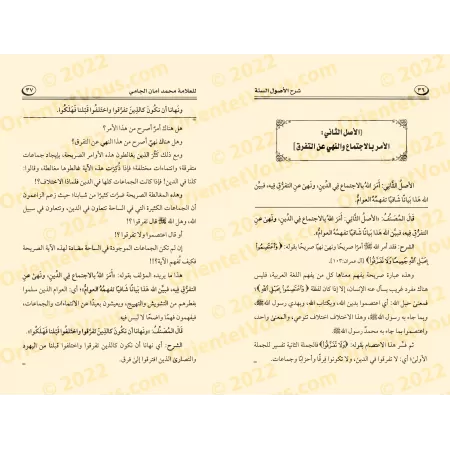 شرح الأصول الستة
٣٦
[الأصل الثاني:
الأمر بالاجتماع والنهي عن التفرق]
الأصلُ الثَّاني: أمَرَ اللهُ بالاجتماعِ في الدِّينِ، ونَهَى عنِ التفرُّقِ فيهِ، فبيَّنَ
اللهُ هذا بَيَانًا شَافيًا تَفهمُهُ العوامُّ.
قال المُصنِّفُ: «الأصلُ الثَّاني: أمَرَ اللهُ بالاجتماعِ في الدِّينِ، ونَهَى عنِ
التفرُّقِ فيهِ، فبيَّنَ اللهُ هذا بَيَانًا شَافيًا تَفهمُهُ العوامُّ».
الشرح: لقد أمر الله أمرًا صريحًا ونهى نهيًا صريحًا بقوله: ﴿وَاعْتَصِمُوا
بِحَبْلِ اللَّهِ جَمِيعًا وَلَا تَفَرَّقُوا﴾ [آل عمران:١٠٣].
وهذه عبارة صريحة يفهم معناها كل من يفهم اللغة العربية، فليس
هناك مفرد غريب يسأل عنه الإنسان؛ إلا إذا كان لفظة
فمعنى حبل الله: أي اعتصموا بدين الله، وبكتاب الله، وبهدي رسول الله
رسول الله ﷺ، وهذا الاختلاف اختلاف تنوعي، والمعنى واحد
واعتصموا بما جاء به محمد رسول الله ﷺ.
ثم فسَّر هذا الاعتصام بقوله: ﴿وَلَا تَفَرَّقُوا﴾ فالجملة الثانية تفسير للجملة
الأولى؛ أي: لا تفرقوا في الدين، ولا تكونوا فِرقًا وأحزابًا وجماعات.
للعلامة محمد أمان الجامي
٣٧
ونهانا أن نكُونَ كالذِينَ تفرَّقُوا واختلَفُوا قَبْلَنا فَهَلَكُوا.
هل هناك أمرٌ أصرح من هذا الأمر؟
وهل هناك نهيٌ أصرح من هذا النهي عن التفرق؟
ومع ذلك كَثُرَ الذين يغالطون هذه الأوامر الصريحة، بإيجاد جماعات
متفرقة؛ وانتماءات مختلفة؛ فإذا ذُكرت هذه الآية قالوها مغالطة، وقالوا:
كلنا في الدين! فإذا كانت الجماعات كلها في الدين فلماذا الاختلاف؟!
وهذه المغالطة الصريحة غيَّرت كثيرًا من شبابنا؛ حيث يدعون
أن الجماعات الكثيرة التي في الساحة تتعاون في الدين، وتتعاون في سبيل
الله، وهل الله ﷻ قال تفرقوا؟!
أو قال اعتصموا ولا تفرقوا؟!
إن لم تكن الجماعات الموجودة في الساحة مضادة لهذه الآية الصريحة
فكيف تُفهم الآية؟!!
هذا ما يريده المؤلف بقوله: «أمَرَ اللهُ بالاجتماعِ في الدِّينِ، ونَهَى عنِ
التفرُّقِ فيهِ، فبيَّنَ اللهُ هذا بَيَانًا شَافيًا تَفهمُهُ العوامُّ»: أي العوام الذين سلموا
بفطرهم من التشويش والتهييج، ويعيشون بعيدًا عن الانتماءات والجماعات،
فيفهمون فهمًا واضحًا لا لبس فيه.
قال المُصنِّفُ: «ونهانا أن نكُونَ كالذِينَ تفرَّقُوا واختلَفُوا قَبْلَنا فَهَلَكُوا».
الشرح: أي نهانا أن نكون كالذين تفرقوا واختلفوا قبلنا من اليهود
والنصارى الذين افترقوا إلى فرق.
© 2022
Orientetlous.com